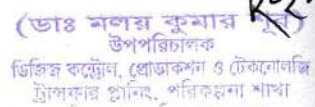 (ডাঃ মলয় কুমার শূর)
উপপরিচালক
ডিজিজ কন্ট্রোল, প্রোডাকশন ও টেকনোলজি
ট্রান্সফার প্লানিং, পরিকল্পনা শাখা